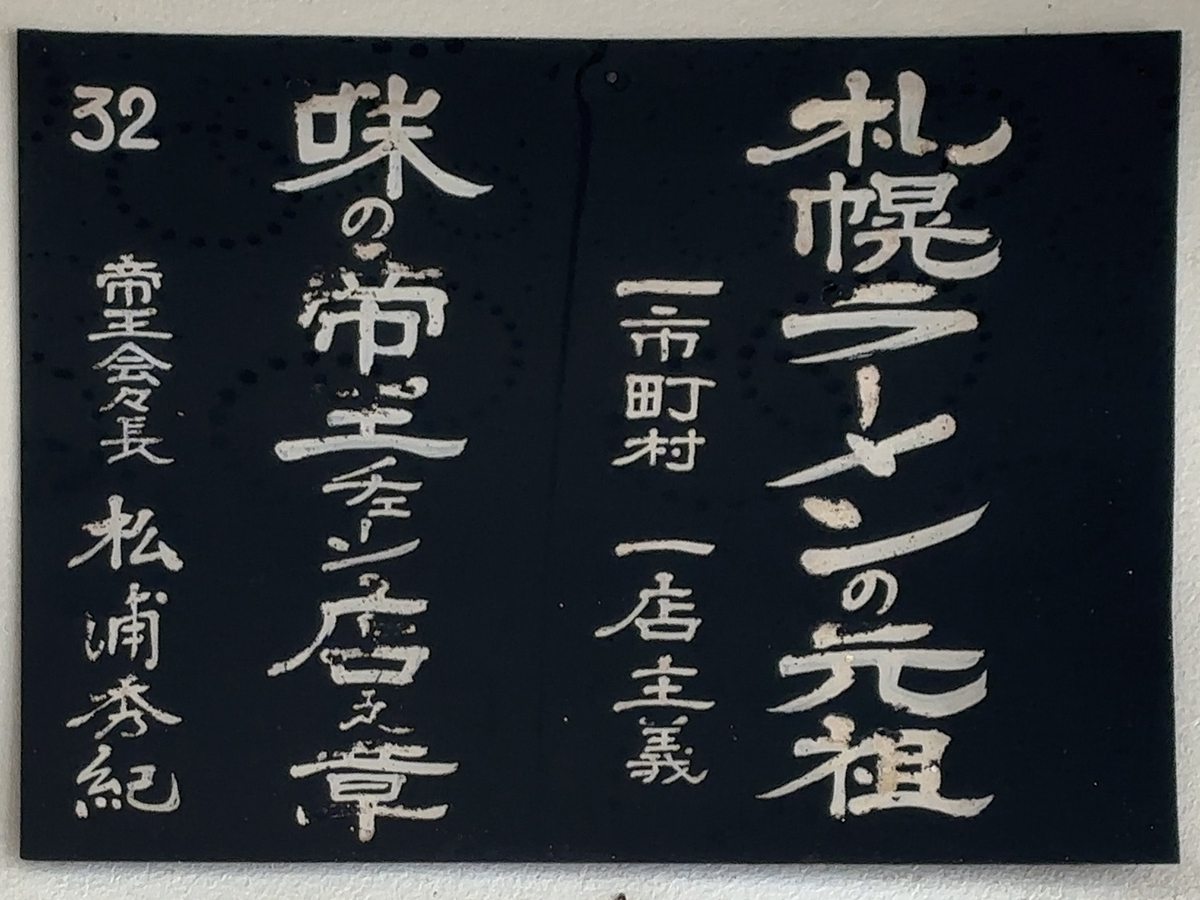 札幌ラーメンの元祖
一市町村 一店主義
味の帝王チェーン店之章
32 帝王会々長 松浦秀紀